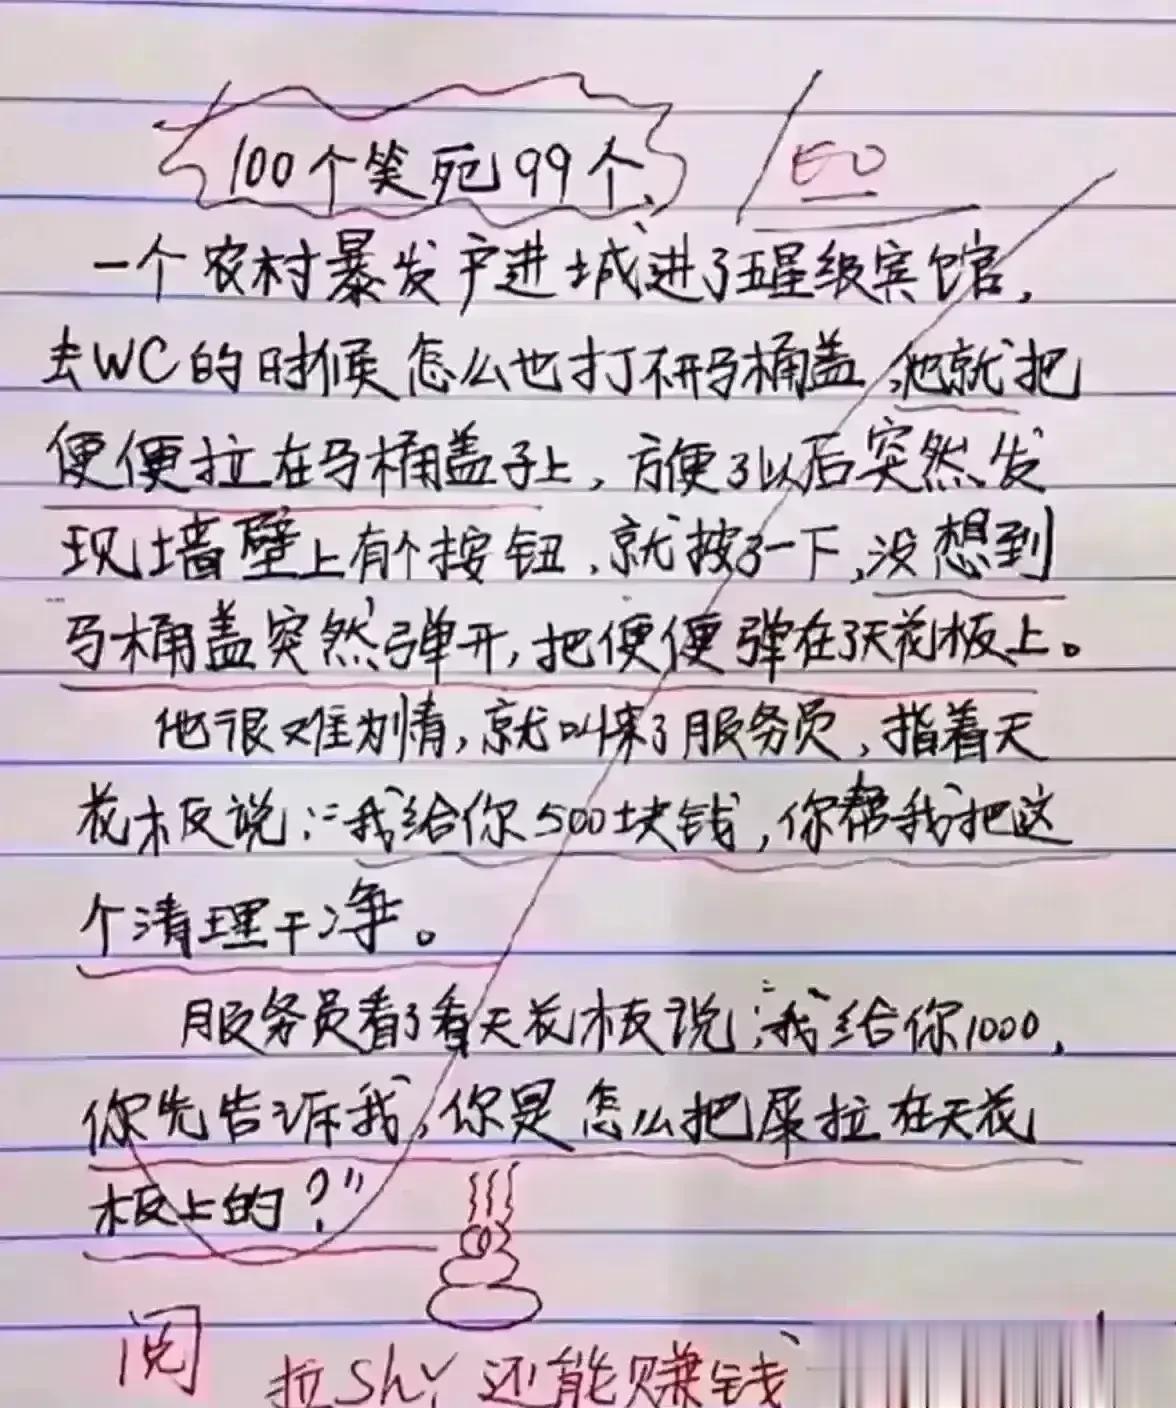 100个笑死99个
一个农村暴发户进城进了五星级宾馆,
去WC的时候怎么也打不开马桶盖,他就把
便便拉在马桶盖子上,方便了以后突然发
现墙壁上有个按钮,就按了一下,没想到
马桶盖突然弹开,把便便弹在了天花板上。
他很难为情,就叫来了服务员,指着天
花板说:“我给你500块钱,你帮我把这
个清理干净。
服务员看了看天花板说:“我给你1000,
你先告诉我,你是怎么把屎拉在天花
板上的?”
阅
拉Shi还能赚钱